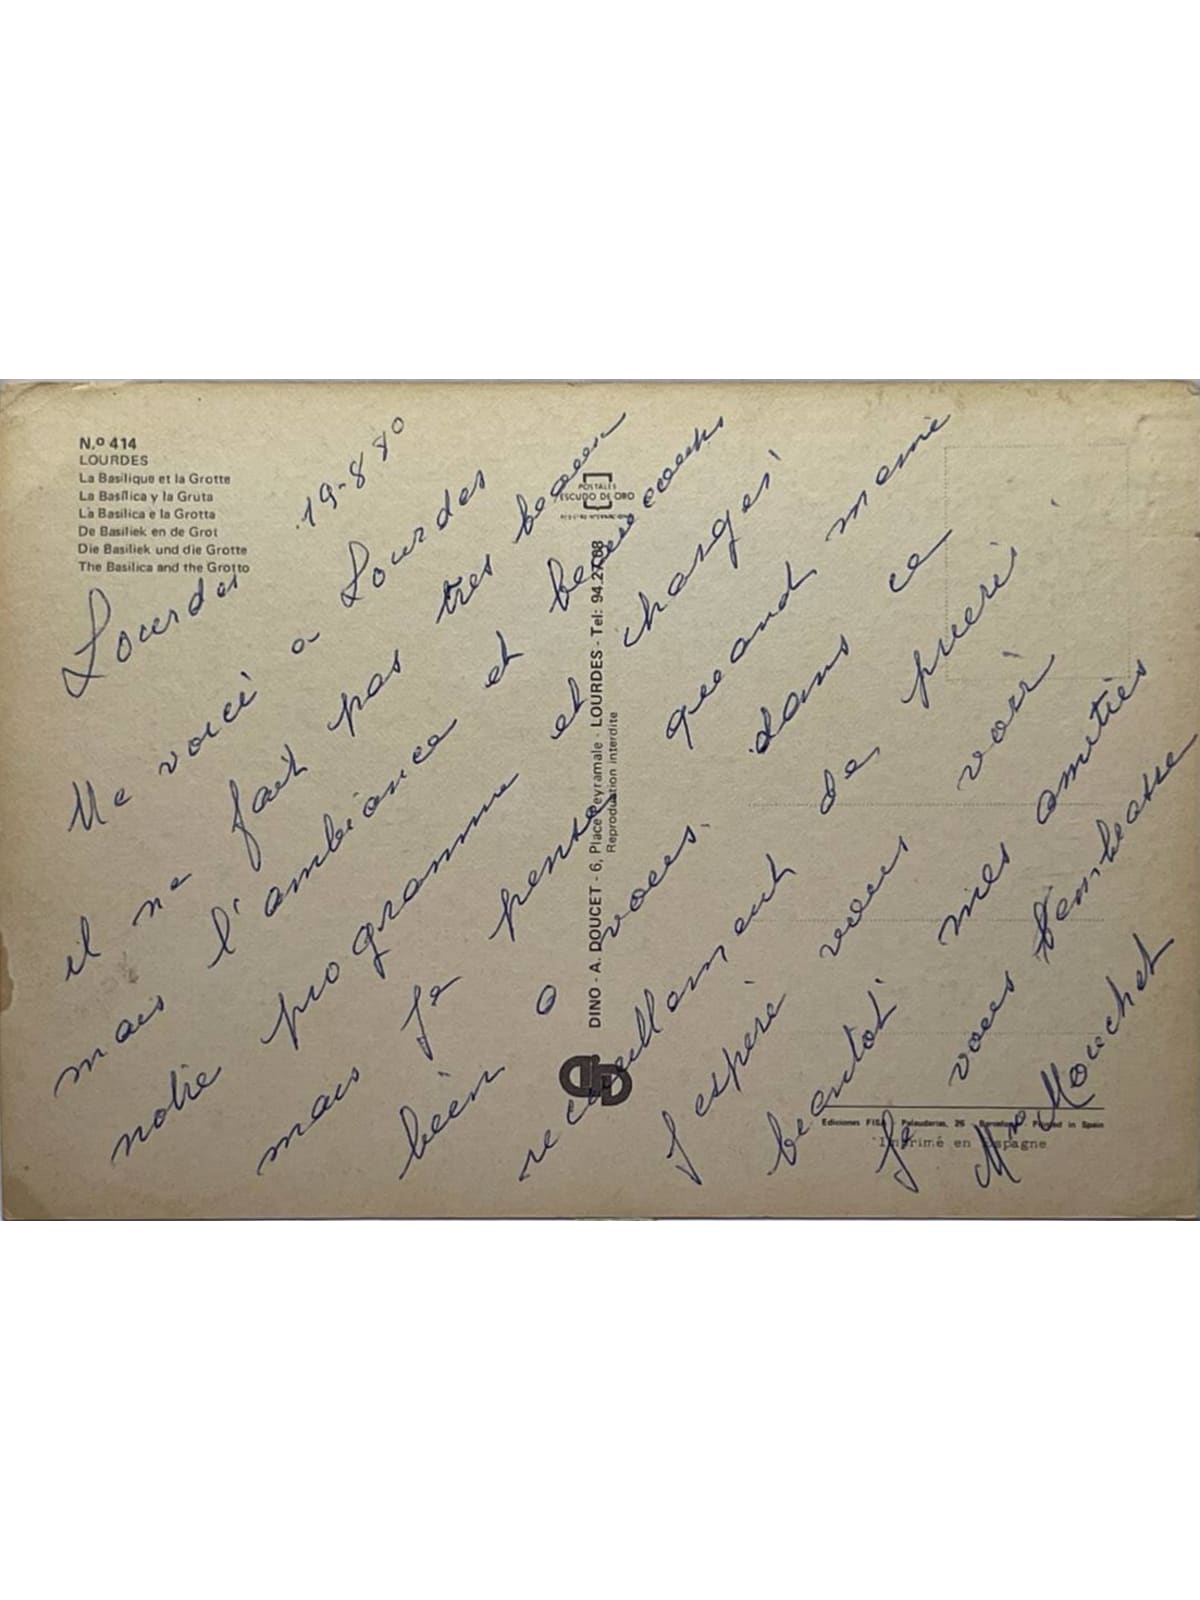 N.º 414
LOURDES
La Basilique et la Grotte
La Basílica y la Gruta
La Basilica e la Grotta
De Basiliek en de Grot
Die Basiliek und die Grotte
The Basilica and the Grotto
POSTALES
ESCUDO DE ORO
DINO - A. DOUCET - 6, Place Peyramale - LOURDES - Tel: 94.27.08
Reproduction interdite
Ediciones FISA - Palaudarias, 26 - Barcelona - Printed in Spain
Imprimé en Espagne
Lourdes 19-8 80
Me voici a Lourdes
il ne fait pas tres beau
mais l'ambiance et beaucoups
notre programme et chargéi
mais je pense quand meme
bien a vous dans ce
recueillament de prieri
J espère vous voir
beantot mes amitiès
Je vous l'embrasse
Mme Mouchet